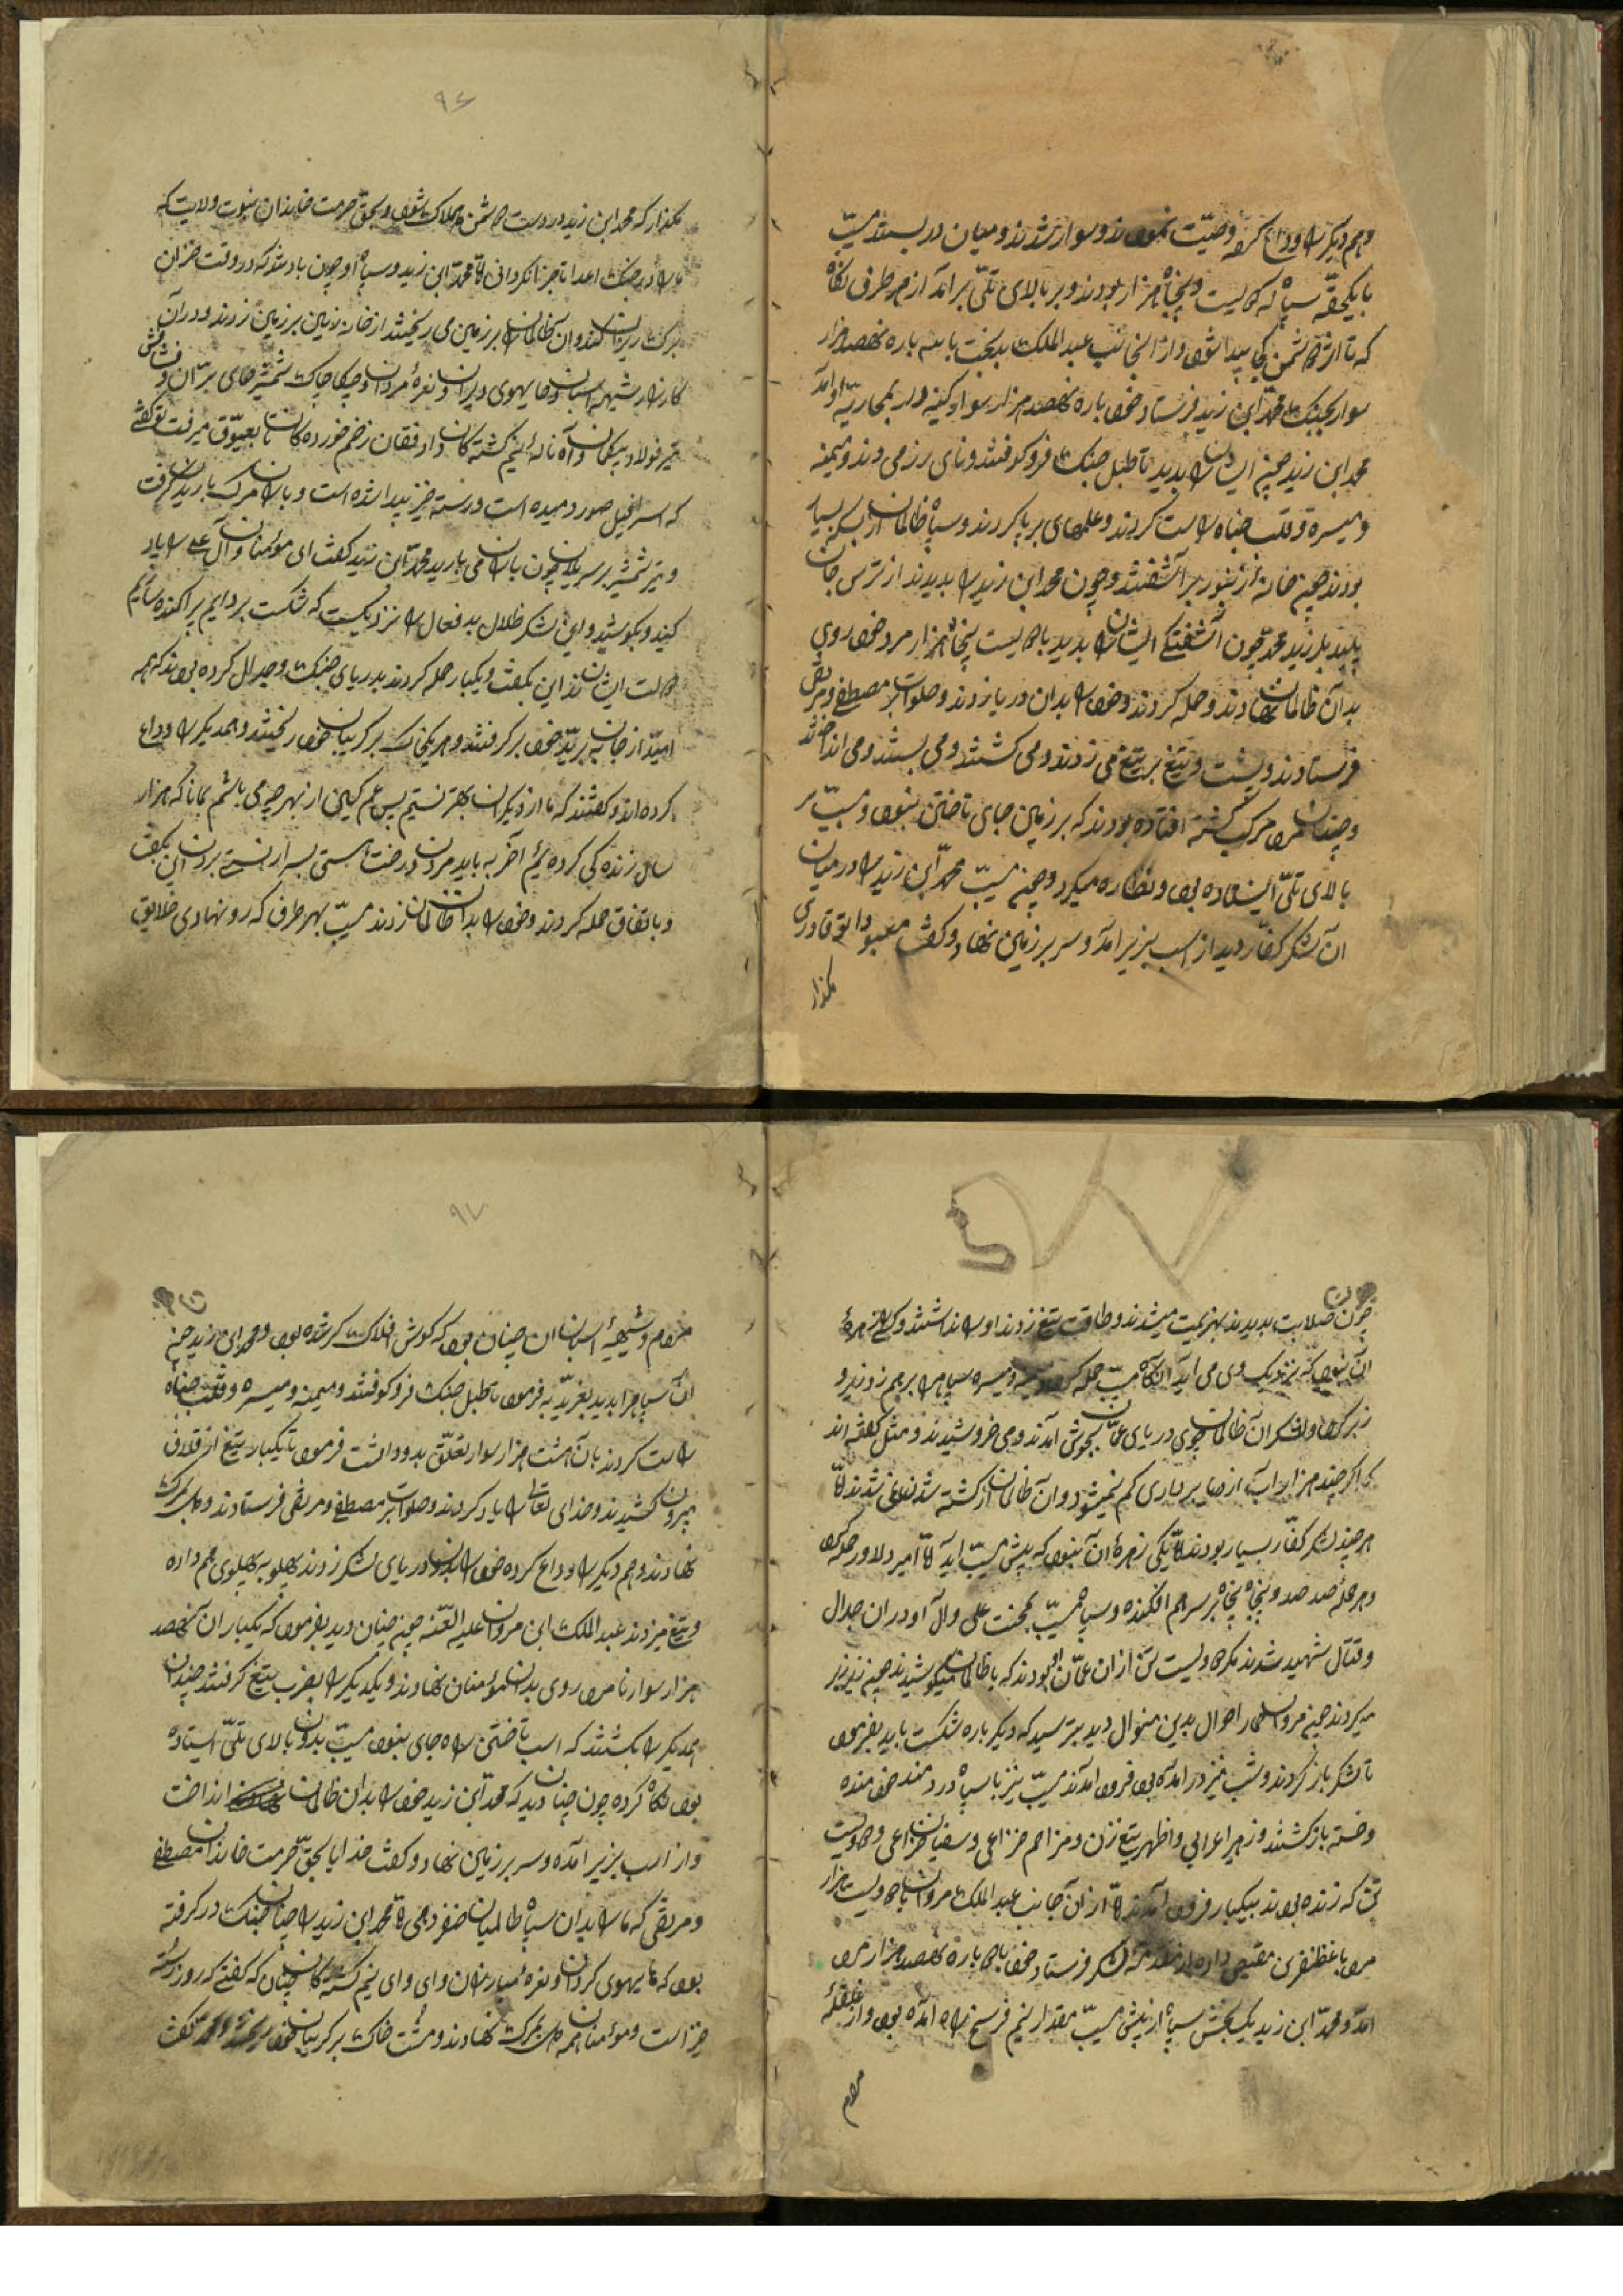 وهم دیکر را وداع کرده وصیّت نمودند و سوار شدند و میان در بستند مسیّب
با یکحقّه سپاه که دویست و پنجاه هزار بودند و بر بالای تلّی برآمد از هر طرف نکاه
که تا از دشمن کی پیدا شود و از انجانب عبد الملک بدبخت با سه باره نهصد هزار
سوار بجنک محمّد ابن زید فرستاد خود باره نهصد هزار سوار
محمد ابن زید چون ایشان را بدید تا طبل جنک را فرو کوفتند و نای رزمی دمیدند و میمنه
و میسره و قلب جناه راست کردند و علمهای بر پا کردند و سپاه ظالمان از بسکه بسیار
بودند چون خانه زنبور بر آشفتند و چون محمد ابن زید را بدیدند از ترس جان
بلرزید محمّد چون آشفتکی ایشان را بدید با دویست پنجاه هزار مرد خود روی
بدان ظالمان نهادند و حمله کردند و خود را بدان دریا زدند و صلوات بر مصطفی و مرتضی
فرستادند و تیغ بر تیغ می زدند و می کشتند و می بستند و می انداختند
و چندان مرد مرکب کشته افتاده بودند که بر زمین جای تاختن نبود و مسیّب بر
بالای تلّی ایستاده بود و نظاره میکرد و چون مسیّب محمّد ابن زید را در میان
ان لشکر کفّار دید از اسب بزیر آمد و سر بر زمین نهاد و کفت معبودا تو قادری
مکذار
۹۶
مکذار که محمد ابن زید در دست دشمن هلاک شود و بحقّ حرمت خاندان نبوت و ولایت که
ما را در جنک اعدا عاجز نکردانی امّا محمّد ابن زید و سپاه او چون باد تند که در وقت خزان
برک ریزان کند و ان ظالمان را بر زمین می ریختند از خانه زین بر زمین زدند و در آن
کارزار شیهه اسبان و های هوی دلیران و نعره مردان و چکا چاک شمشیر های برّان و
تیر فولاد پیکان و آه و ناله نیم کشته کان و افغان زخم خورده کان تا بعیّوق میرفت تو کفتی
که اسرافیل صور دمیده است و رسته خیز پیدا شده است و باران مرک باریدن کرفت
و تیر شمشیر بر سر یلان چون باران می بارید محمّد ابن زید کفت ای مؤمنان و آل علی را یار
کنید و بکوشید و این لشکر ظلال بدفعال را نزدیکست که شکست بر دایم پراکنده سازیم
این بکفت و یکبار حمله کردند بدریای جنک و جدال کرده بودند که همه
امیّد از جان ببریّد خود بر کرفتند و هر یکی خاک بر کریبان خود ریختند و همدیکر را وداع
کرده اند و کفتند که ما از دیکران بهتر نیستیم پس غم کیلی از بهر چه می باشم همانا که هزار
سال زنده کی کرده ایم آخر به باید مردن و رخت هستی بسرای نیستی بردن این بکفت
و باتفاق حمله کردند و خود را بدان ظالمان زدند مسیّب بهر طرف که رو نهادی خلایق
چون صلابت بدیدند بهزیمت میشدند و طاقت تیغ زدن او را نداشتند و کس را زهره
ان نبود که نزدیک وی می آید آنکاه مسیّب حمله کرد و میسره سپاه را برهم زد و زیر و
زبر کرد و لشکر ان ظالمان چون دریای عمان بجوش آمدند و می خروشیدند و مثل کفته اند
که اکر چند هزار آب از دریا برداری کم نمیشود و آن ظالمان از کشته شدن نمی شدند امّا
هر چند لشکر کفّار بسیار بودند امّا یکی زهره ان نبود که پیش مسیّب آید امّا امیر دلاور حمله کرد
و در هر حمله صد صد و پنجاه پنجاه بر سر هم افکنده و سپاه مسیّب بمحبّت علی و ال او در ان جدال
و قتال شهید شدند مکر دویست تن از ان عمّان او بودند که با ظالمان میکوشیدند
میکردند چون مروان حمار احوال بدین منوال دید بترسید که دیکر باره شکست یابد بفرمود
تا لشکر باز کردند و شب نیز در آمده بود فرود آمدند مسیّب نیز با سپاه دردمند خود مانده
و خسته بازکشتند و زهیر اعرابی و اظهر تیغ زن و مزاحم خزاعی و سفیان خزاعی و دویست
تن که زنده بودند بیکبار فرود آمدند امّا از ان جانب عبد الملک مروان با دویست هزار
مرد با غظنفری مقیمی داده از مقدّمه لشکر فرستاد خود با باره نهصد هزار مرد
آمد و محمّد ابن زید یک بخش سپاه از پیش مسیّب مقدار نیم فرسخ راه آمده بود و از غلغله
مردم
۹۷
مردم و شیهه اسبان ان چنان بود که کوش افلاک کر شده بود و محمد ابن زید چون
ان سپاه را بدید بغریّد به فرمود تا طبل جنک فرو کوفتند و میمنه و میسره و قلب جناه
راست کردند با آن هشت هزار سوار تعلّق بدو داشت فرمود تا یکبار تیغ از قلاف
بیرون کشیدند و خدای تعالی را یاد کردند و صلوات بر مصطفی و مرتضی فرستادند و دل بمرک
نهادند و هم دیکر را وداع کرده خود را بدان دریای لشکر زدند پهلو به پهلوی هم داده
و تیغ میزدند عبد الملک ابن مروان علیه اللعّنه چون چنان دید بفرمود که یکبار ان نهصد
هزار سوار نامرد روی بدان مؤمنان نهادند و یکدیکر را بضرب تیغ کرفتند چندان
همدیکر را بکشتند که اسب تاختن را جای نبود مسیّب بدان بالای تلّی ایستاده
بود نکاه کرده چون چنان دید که محمّد ابن زید خود را بدان ظالمان انداخت
و از اسب بزیر آمده و سر بر زمین نهاد و کفت خدایا بحقّ حرمت خاندان مصطفی
و مرتضی که ما را بدان سپاه ظالمان ظفر دهی امّا محمّد ابن زید را چنان جنک در کرفته
بود که های هوی کردان و نعره مبارزان و وای وای نیم کشته کان چنان که کفتی که روز رسته
خیز است و مؤمنان همه دل بمرک نهادند و مشت خاک بر کریبان خود ریختند و محمّد کفت